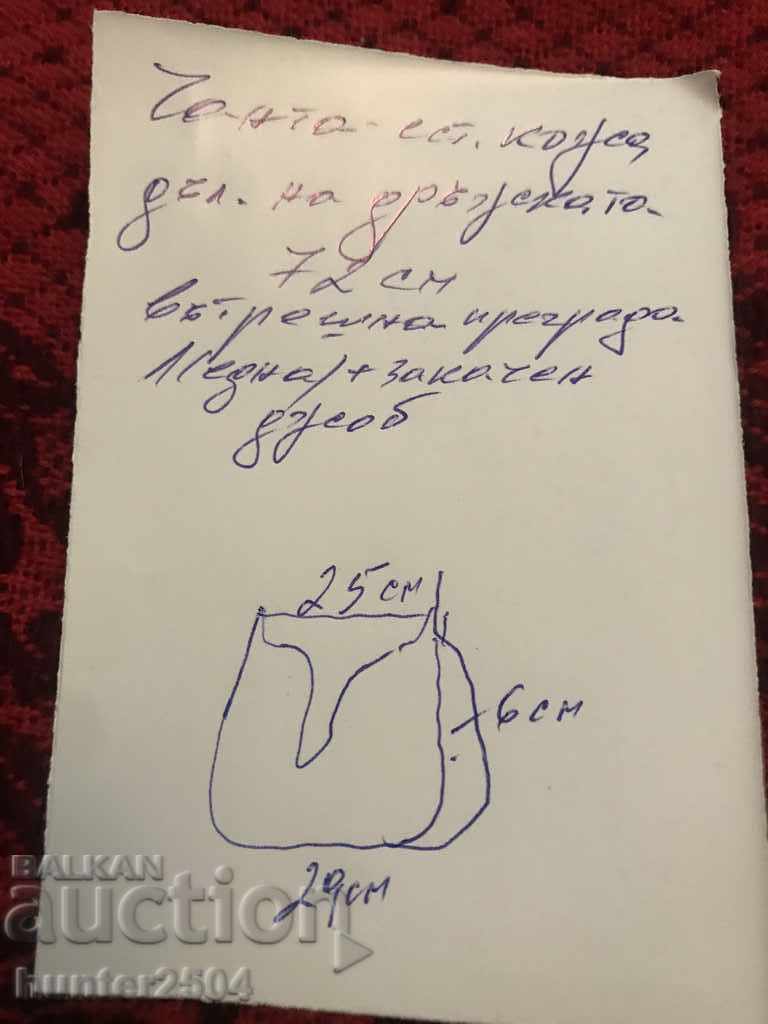 Чанта - ест. кожа
дъл. на дръжката
72 см
вътрешна преграда
1(една) + закачен
джоб
25 см
6 см
29 см
BALKAN
auction
hunter2504